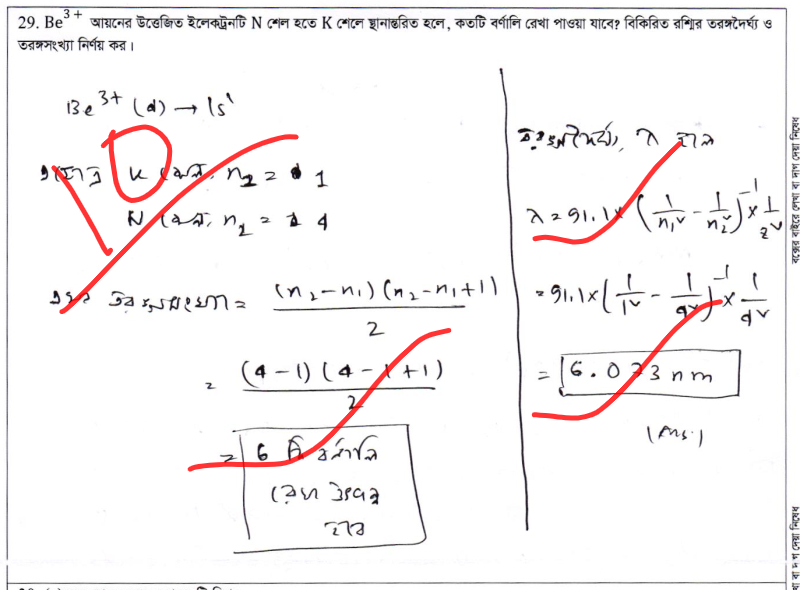 29. Be³⁺ আয়নের উত্তেজিত ইলেকট্রনটি N শেল হতে K শেলে স্থানান্তরিত হলে, কতটি বর্ণালি রেখা পাওয়া যাবে? বিকিরিত রশ্মির তরঙ্গদৈর্ঘ্য ও
তরঙ্গসংখ্যা নির্ণয় কর।
Be³⁺ (4) → 1s¹
এখানে K শেল, n₂ = 1
N শেল, n₂ = 4
এখন তরঙ্গসংখ্যা = (n₂-n₁)(n₂-n₁+1)/2
= (4-1)(4-1+1)/2
= 6 টি বর্ণালি
রেখা উৎপন্ন
হবে
তরঙ্গদৈর্ঘ্য, λ হলে
λ = 91.1 × (1/n₁² - 1/n₂²)⁻¹ × 1/z²
= 91.1 × (1/1² - 1/4²)⁻¹ × 1/4²
= 6.073 nm
(Ans.)
বক্সের বাইরে লেখা বা দাগ দেয়া নিষেধ
খা বা দাগ দেয়া নিষেধ